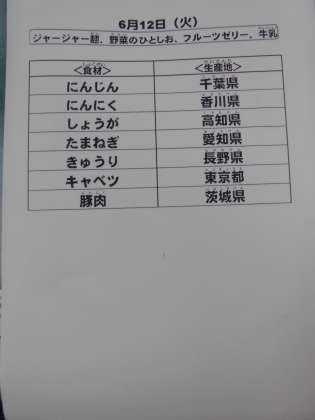 6月12日（火）
ジャージャー麺、野菜のひとしお、フルーツゼリー、牛乳
＜食材＞ ＜生産地＞
にんじん 千葉県
にんにく 香川県
しょうが 高知県
たまねぎ 愛知県
きゅうり 長野県
キャベツ 東京都
豚肉 茨城県